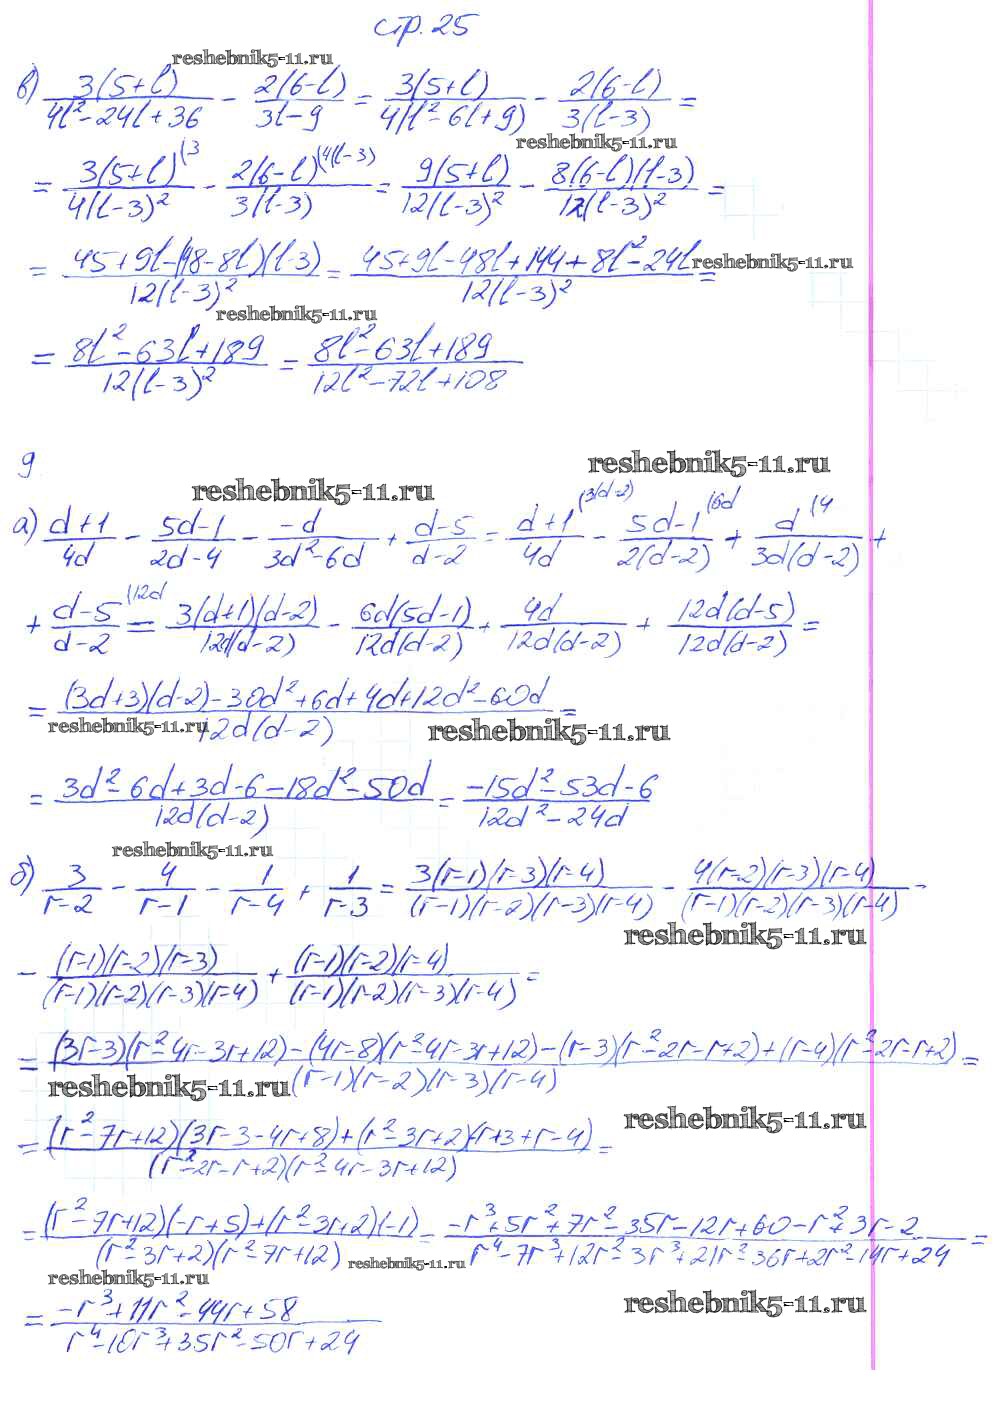 стр. 25
reshebnik5-11.ru
в) 3(5+l)/(4l²-24l+36) - 2(6-l)/(3l-9) = 3(5+l)/(4(l²-6l+9)) - 2(6-l)/(3(l-3)) =
reshebnik5-11.ru
= 3(5+l)^(3/(4(l-3)²) - 2(6-l)^(4(l-3)/(3(l-3)) = 9(5+l)/(12(l-3)²) - 8(6-l)(l-3)/(12(l-3)²) =
= (45+9l-(48-8l)(l-3))/(12(l-3)²) = (45+9l-48l+144+8l²-24l)/(12(l-3)²) =
reshebnik5-11.ru
reshebnik5-11.ru
= (8l²-63l+189)/(12(l-3)²) = (8l²-63l+189)/(12l²-72l+108)
9
reshebnik5-11.ru
reshebnik5-11.ru
а) (d+1)/(4d) - (5d-1)/(2d-4) - (-d)/(3d²-6d) + (d-5)/(d-2) = (d+1)^(3(d-2)/(4d) - (5d-1)^(6d/(2(d-2)) + d^(4/(3d(d-2)) +
+ (d-5)^(12d/(d-2) = 3(d+1)(d-2)/(12d(d-2)) - 6d(5d-1)/(12d(d-2)) + 4d/(12d(d-2)) + 12d(d-5)/(12d(d-2)) =
= ((3d+3)(d-2)-30d²+6d+4d+12d²-60d)/(12d(d-2)) =
reshebnik5-11.ru
reshebnik5-11.ru
= (3d²-6d+3d-6-18d²-50d)/(12d(d-2)) = (-15d²-53d-6)/(12d²-24d)
reshebnik5-11.ru
б) 3/(r-2) - 4/(r-1) - 1/(r-4) + 1/(r-3) = 3(r-1)(r-3)(r-4)/((r-1)(r-2)(r-3)(r-4)) - 4(r-2)(r-3)(r-4)/((r-1)(r-2)(r-3)(r-4)) -
reshebnik5-11.ru
- (r-1)(r-2)(r-3)/((r-1)(r-2)(r-3)(r-4)) + (r-1)(r-2)(r-4)/((r-1)(r-2)(r-3)(r-4)) =
= ((3r-3)(r²-4r-3r+12)-(4r-8)(r²-4r-3r+12)-(r-3)(r²-2r-r+2)+(r-4)(r²-2r-r+2))/((r-1)(r-2)(r-3)(r-4)) =
reshebnik5-11.ru
reshebnik5-11.ru
= ((r²-7r+12)(3r-3-4r+8)+(r²-3r+2)(-r+3+r-4))/((r²-2r-r+2)(r²-4r-3r+12)) =
= ((r²-7r+12)(-r+5)+(r²-3r+2)(-1))/((r²-3r+2)(r²-7r+12)) = (-r³+5r²+7r²-35r-12r+60-r²+3r-2)/(r⁴-7r³+12r²-3r³+21r²-36r+2r²-14r+24) =
reshebnik5-11.ru
reshebnik5-11.ru
reshebnik5-11.ru
= (-r³+11r²-44r+58)/(r⁴-10r³+35r²-50r+24)